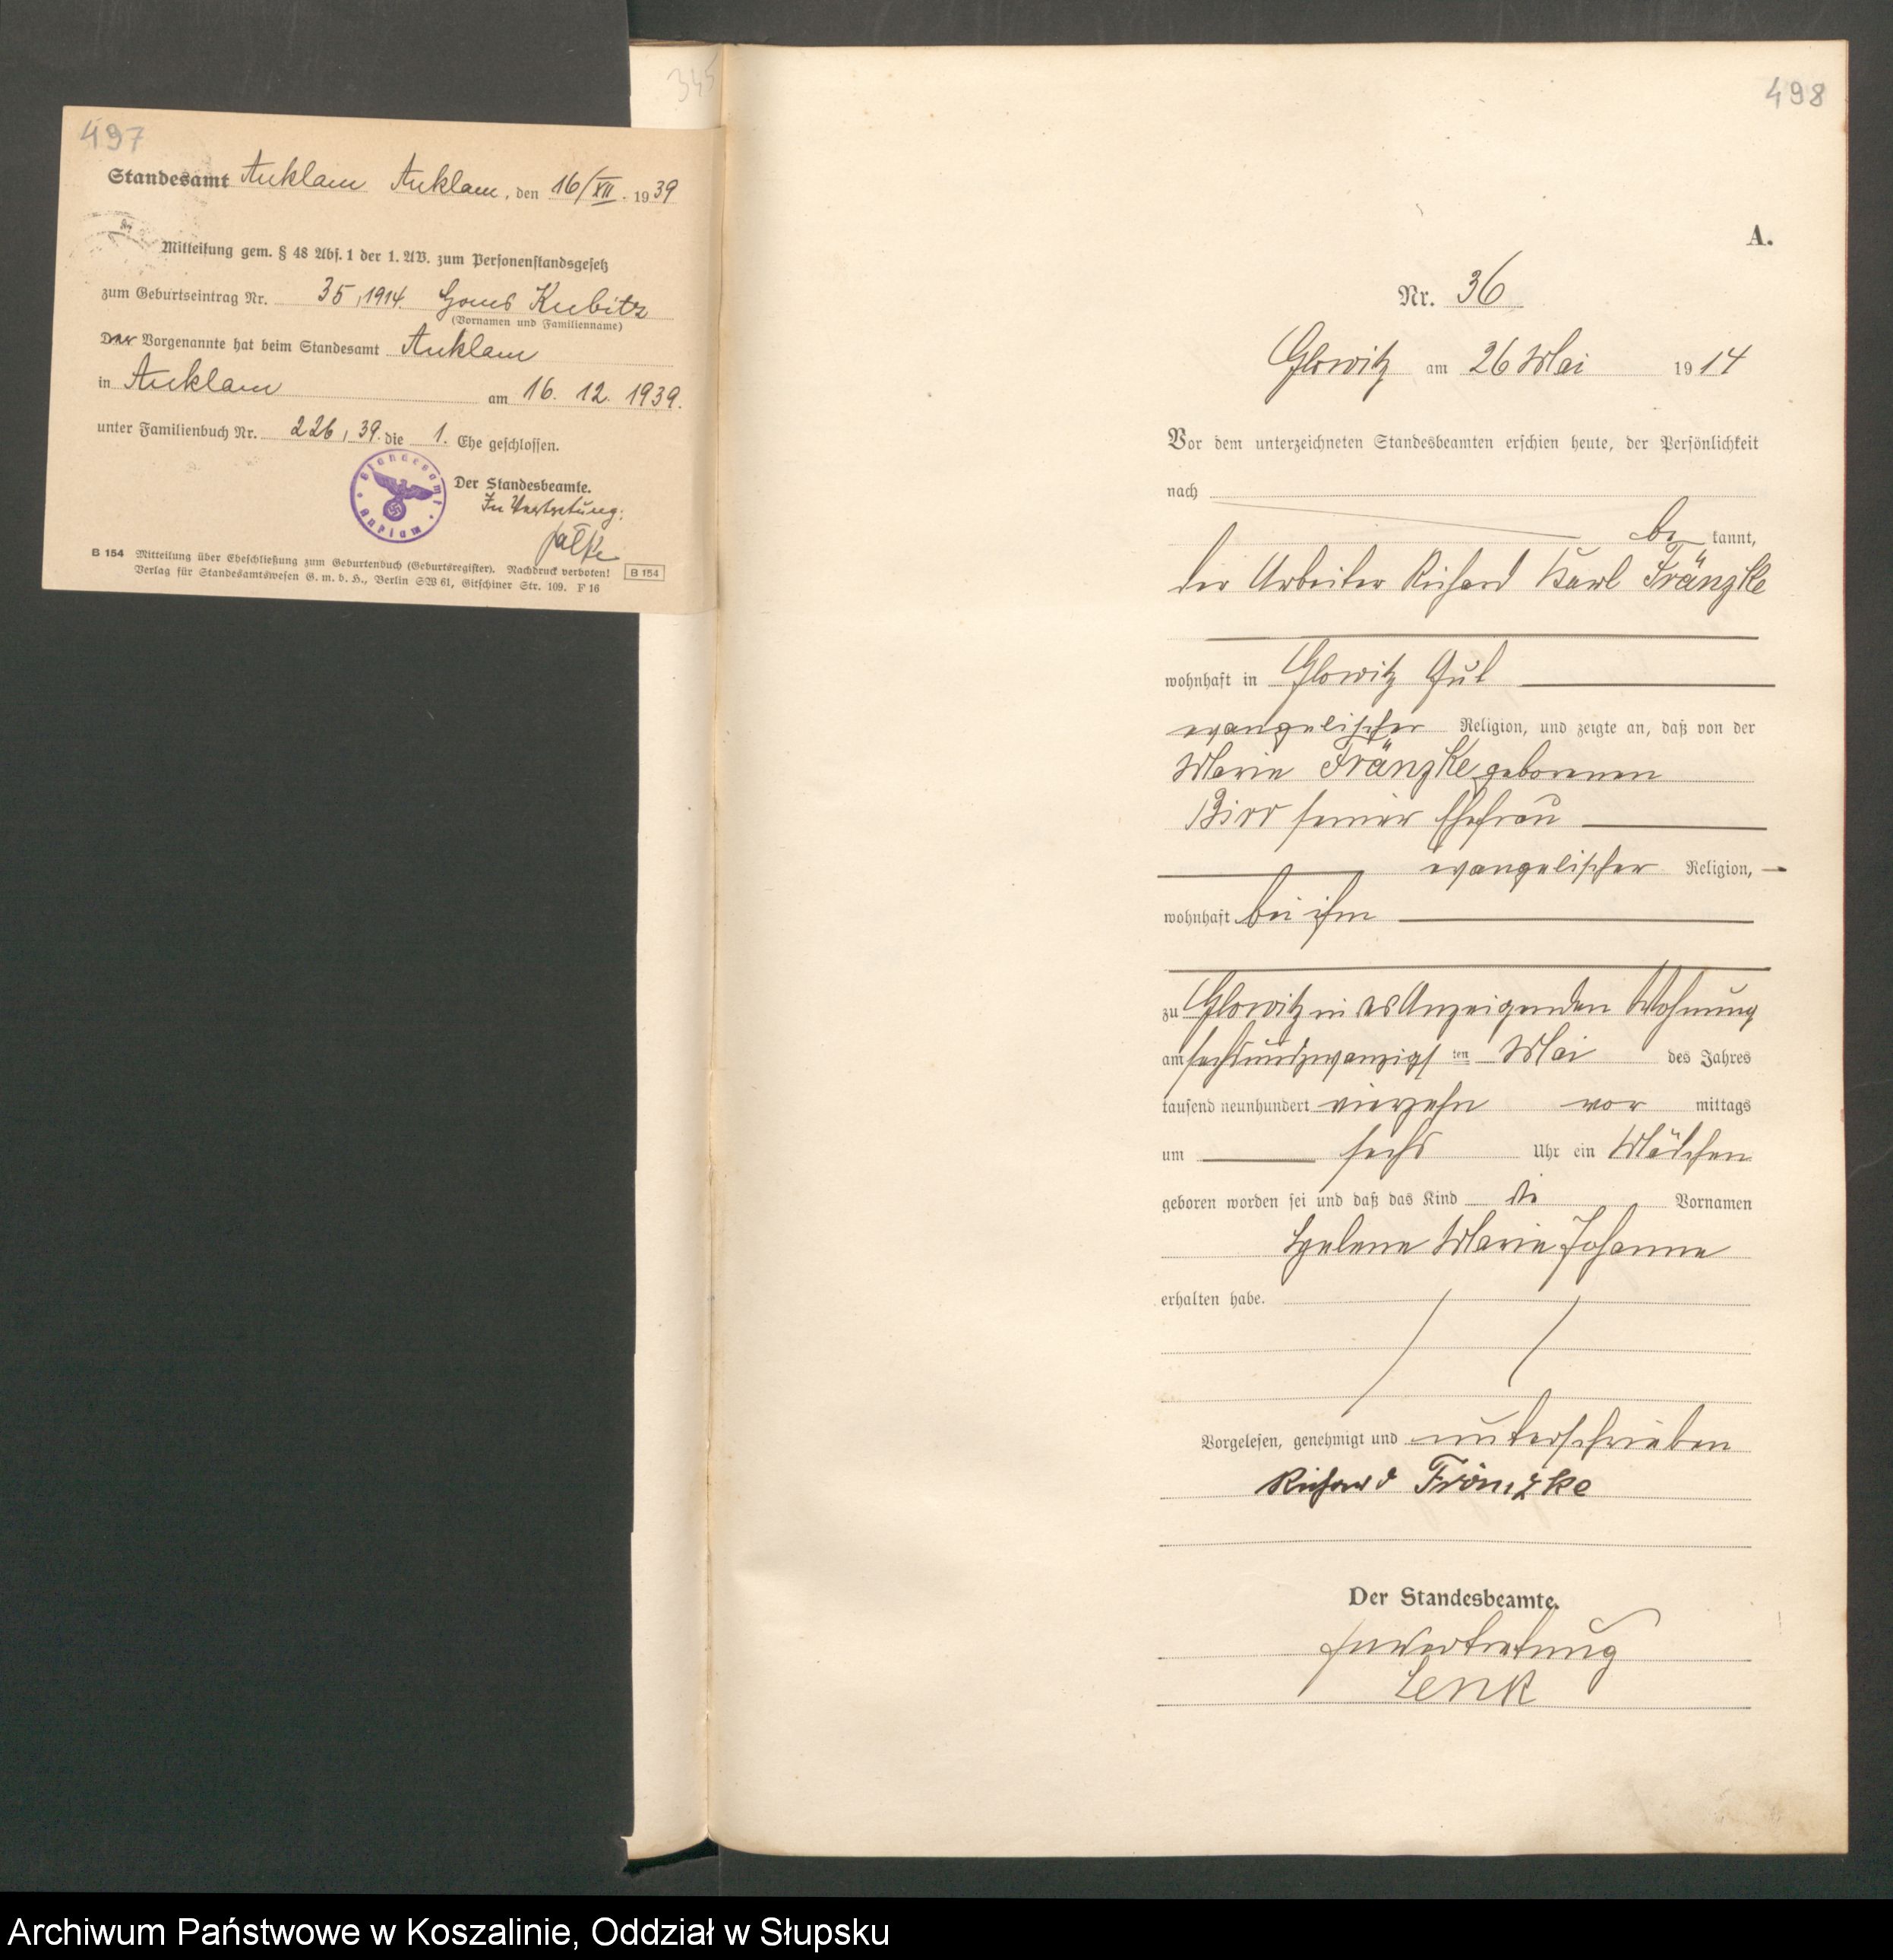 497
Standesamt Anklam Anklam, den 16/XII. 1939
Mitteilung gem. § 48 Abs. 1 der 1. AV. zum Personenstandsgesetz
zum Geburtseintrag Nr. 35, 1914. Hans Kubitz
(Vornamen und Familienname)
Der Vorgenannte hat beim Standesamt Anklam
in Anklam am 16. 12. 1939.
unter Familienbuch Nr. 226, 39. die 1. Ehe geschlossen.
Standesamt Anklam
Der Standesbeamte.
In Vertretung:
B 154 Mitteilung über Eheschließung zum Geburtenbuch (Geburtsregister). Nachdruck verboten! B 154
Verlag für Standesamtswesen G. m. b. H., Berlin SW 61, Gitschiner Str. 109. F 16
345
498
A.
Nr. 36
Glowitz am 26 Mai 1914
Vor dem unterzeichneten Standesbeamten erschien heute, der Persönlichkeit
nach
be kannt,
der Arbeiter Richard Karl Fränzke
wohnhaft in Glowitz Gut
evangelischer Religion, und zeigte an, daß von der
Marie Fränzke geborenen
Birr seiner Ehefrau
evangelischer Religion,
wohnhaft bei ihm
zu Glowitz in des Anzeigenden Wohnung
am sechsundzwanzigsten Mai des Jahres
tausend neunhundert vierzehn vor mittags
um sechs Uhr ein Mädchen
geboren worden sei und daß das Kind die Vornamen
Helene Marie Johanne
erhalten habe.
Vorgelesen, genehmigt und unterschrieben
Richard Fränzke
Der Standesbeamte.
In Vertretung
Lenk
Archiwum Państwowe w Koszalinie, Oddział w Słupsku